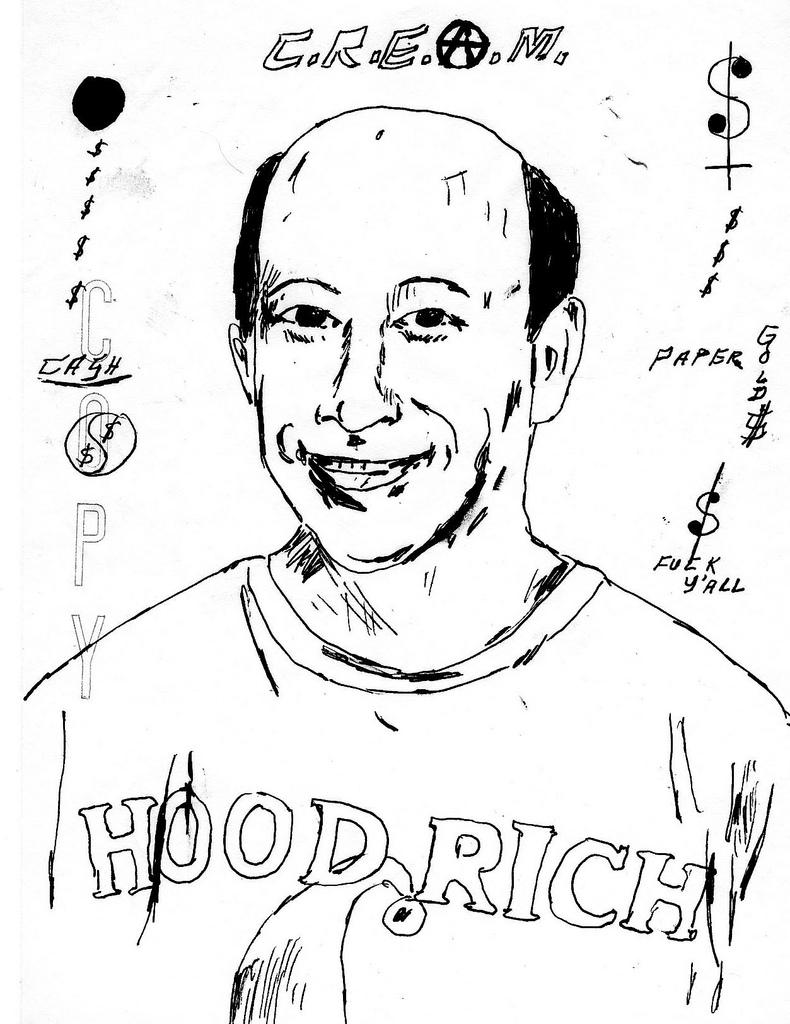 C.R.E.A.M.
$
$
$
$
$
$
$
$
$
CASH
PAPER
GOLD$
$ $
$
FUCK
Y'ALL
COPY
HOOD RICH